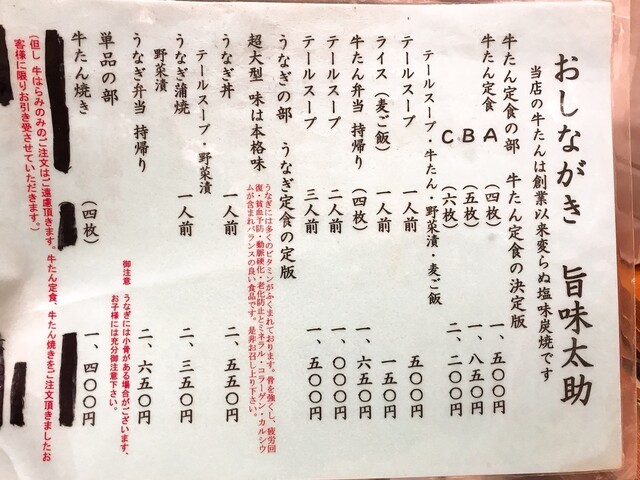 おしながき 旨味太助
当店の牛たんは創業以来変らぬ塩味炭焼です
牛たん定食の部 牛たん定食の決定版
牛たん定食 A (四枚) 一、五〇〇円
B (五枚) 一、八五〇円
C (六枚) 二、二〇〇円
テールスープ・牛たん・野菜漬・麦ご飯
テールスープ 一人前 五〇〇円
ライス(麦ご飯) 一人前 一五〇円
牛たん弁当 持帰り (四枚) 一、六五〇円
テールスープ 二人前 一、〇〇〇円
テールスープ 三人前 一、五〇〇円
うなぎの部 うなぎ定食の定版
超大型 味は本格味
うなぎには多くのビタミンがふくまれております。骨を強くし、疲労回
復・貧血予防・動脈硬化・老化防止とミネラル・コラーゲン・カルシウ
ムが含まれバランスの良い食品です。是非お召し上り下さい。
うなぎ丼 一人前 二、五五〇円
テールスープ・野菜漬
うなぎ蒲焼 一人前 二、三五〇円
野菜漬
うなぎ弁当 持帰り 二、六五〇円
御注意 うなぎには小骨がある場合がございます、
お子様には充分御注意下さい。
単品の部
牛たん焼き (四枚) 一、四〇〇円
(四枚)
(但し 牛はらみのみのご注文はご遠慮頂きます。牛たん定食、牛たん焼きをご注文頂きましたお
客様に限りお引き受させていただきます。)